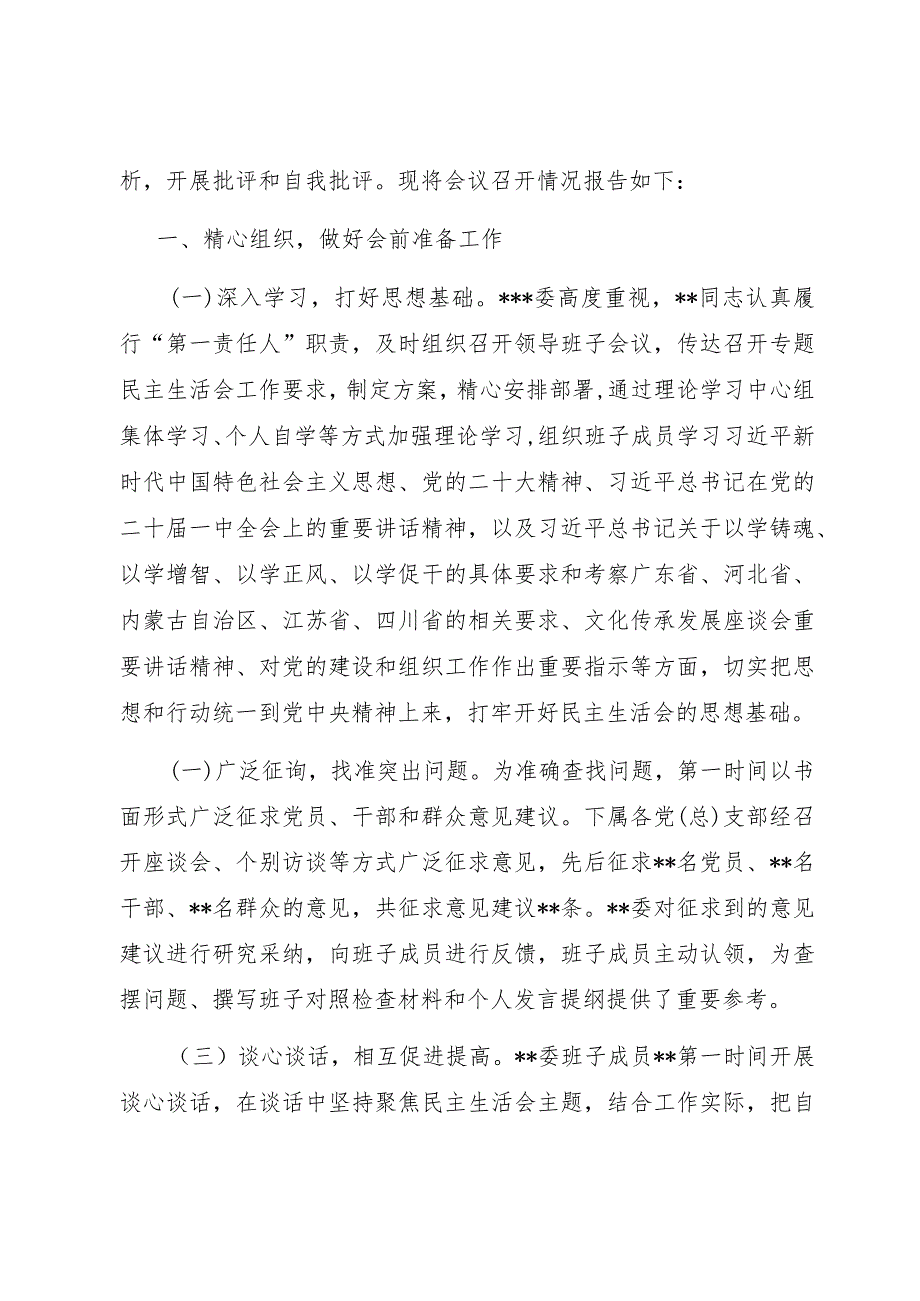 析，开展批评和自我批评。现将会议召开情况报告如下：
一、精心组织，做好会前准备工作
(一)深入学习，打好思想基础。***委高度重视，**同志认真履
行“第一责任人”职责，及时组织召开领导班子会议，传达召开专题
民主生活会工作要求，制定方案，精心安排部署,通过理论学习中心组
集体学习、个人自学等方式加强理论学习,组织班子成员学习习近平新
时代中国特色社会主义思想、党的二十大精神、习近平总书记在党的
二十届一中全会上的重要讲话精神，以及习近平总书记关于以学铸魂、
以学增智、以学正风、以学促干的具体要求和考察广东省、河北省、
内蒙古自治区、江苏省、四川省的相关要求、文化传承发展座谈会重
要讲话精神、对党的建设和组织工作作出重要指示等方面，切实把思
想和行动统一到党中央精神上来，打牢开好民主生活会的思想基础。
(一)广泛征询，找准突出问题。为准确查找问题，第一时间以书
面形式广泛征求党员、干部和群众意见建议。下属各党(总)支部经召
开座谈会、个别访谈等方式广泛征求意见，先后征求**名党员、**名
干部、**名群众的意见，共征求意见建议**条。**委对征求到的意见
建议进行研究采纳，向班子成员进行反馈，班子成员主动认领，为查
摆问题、撰写班子对照检查材料和个人发言提纲提供了重要参考。
（三）谈心谈话，相互促进提高。**委班子成员**第一时间开展
谈心谈话，在谈话中坚持聚焦民主生活会主题，结合工作实际，把自